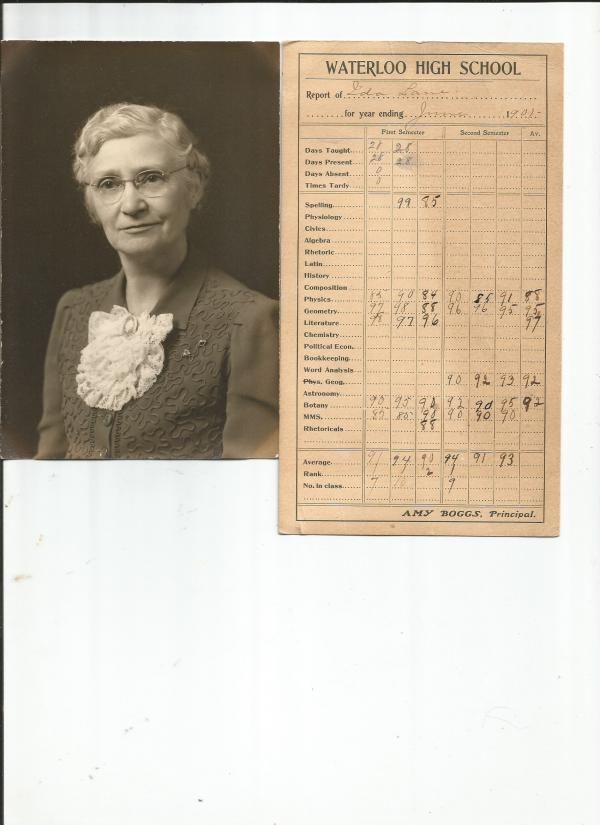 WATERLOO HIGH SCHOOL
Report of Ida Lane
for year ending June 1901
First Semester Second Semester Av.
Days Taught 28 28
Days Present 28 28
Days Absent 0
Times Tardy 0
Spelling 99 85
Physiology
Civics
Algebra
Rhetoric
Latin
History
Composition
Physics 85 90 84 90 85 91 88
Geometry 97 98 88 96 96 95 95
Literature 98 97 96 97
Chemistry
Political Econ.
Bookkeeping
Word Analysis
Phys. Geog. 90 92 93 92
Astronomy
Botany 90 95 90 92 90 95 92
MMS. 85 80 90 90 90 90
Rhetoricals 88
Average 91 94 90 94 91 93
Rank 2 1
No. in class 7 10 9
AMY BOGGS, Principal.